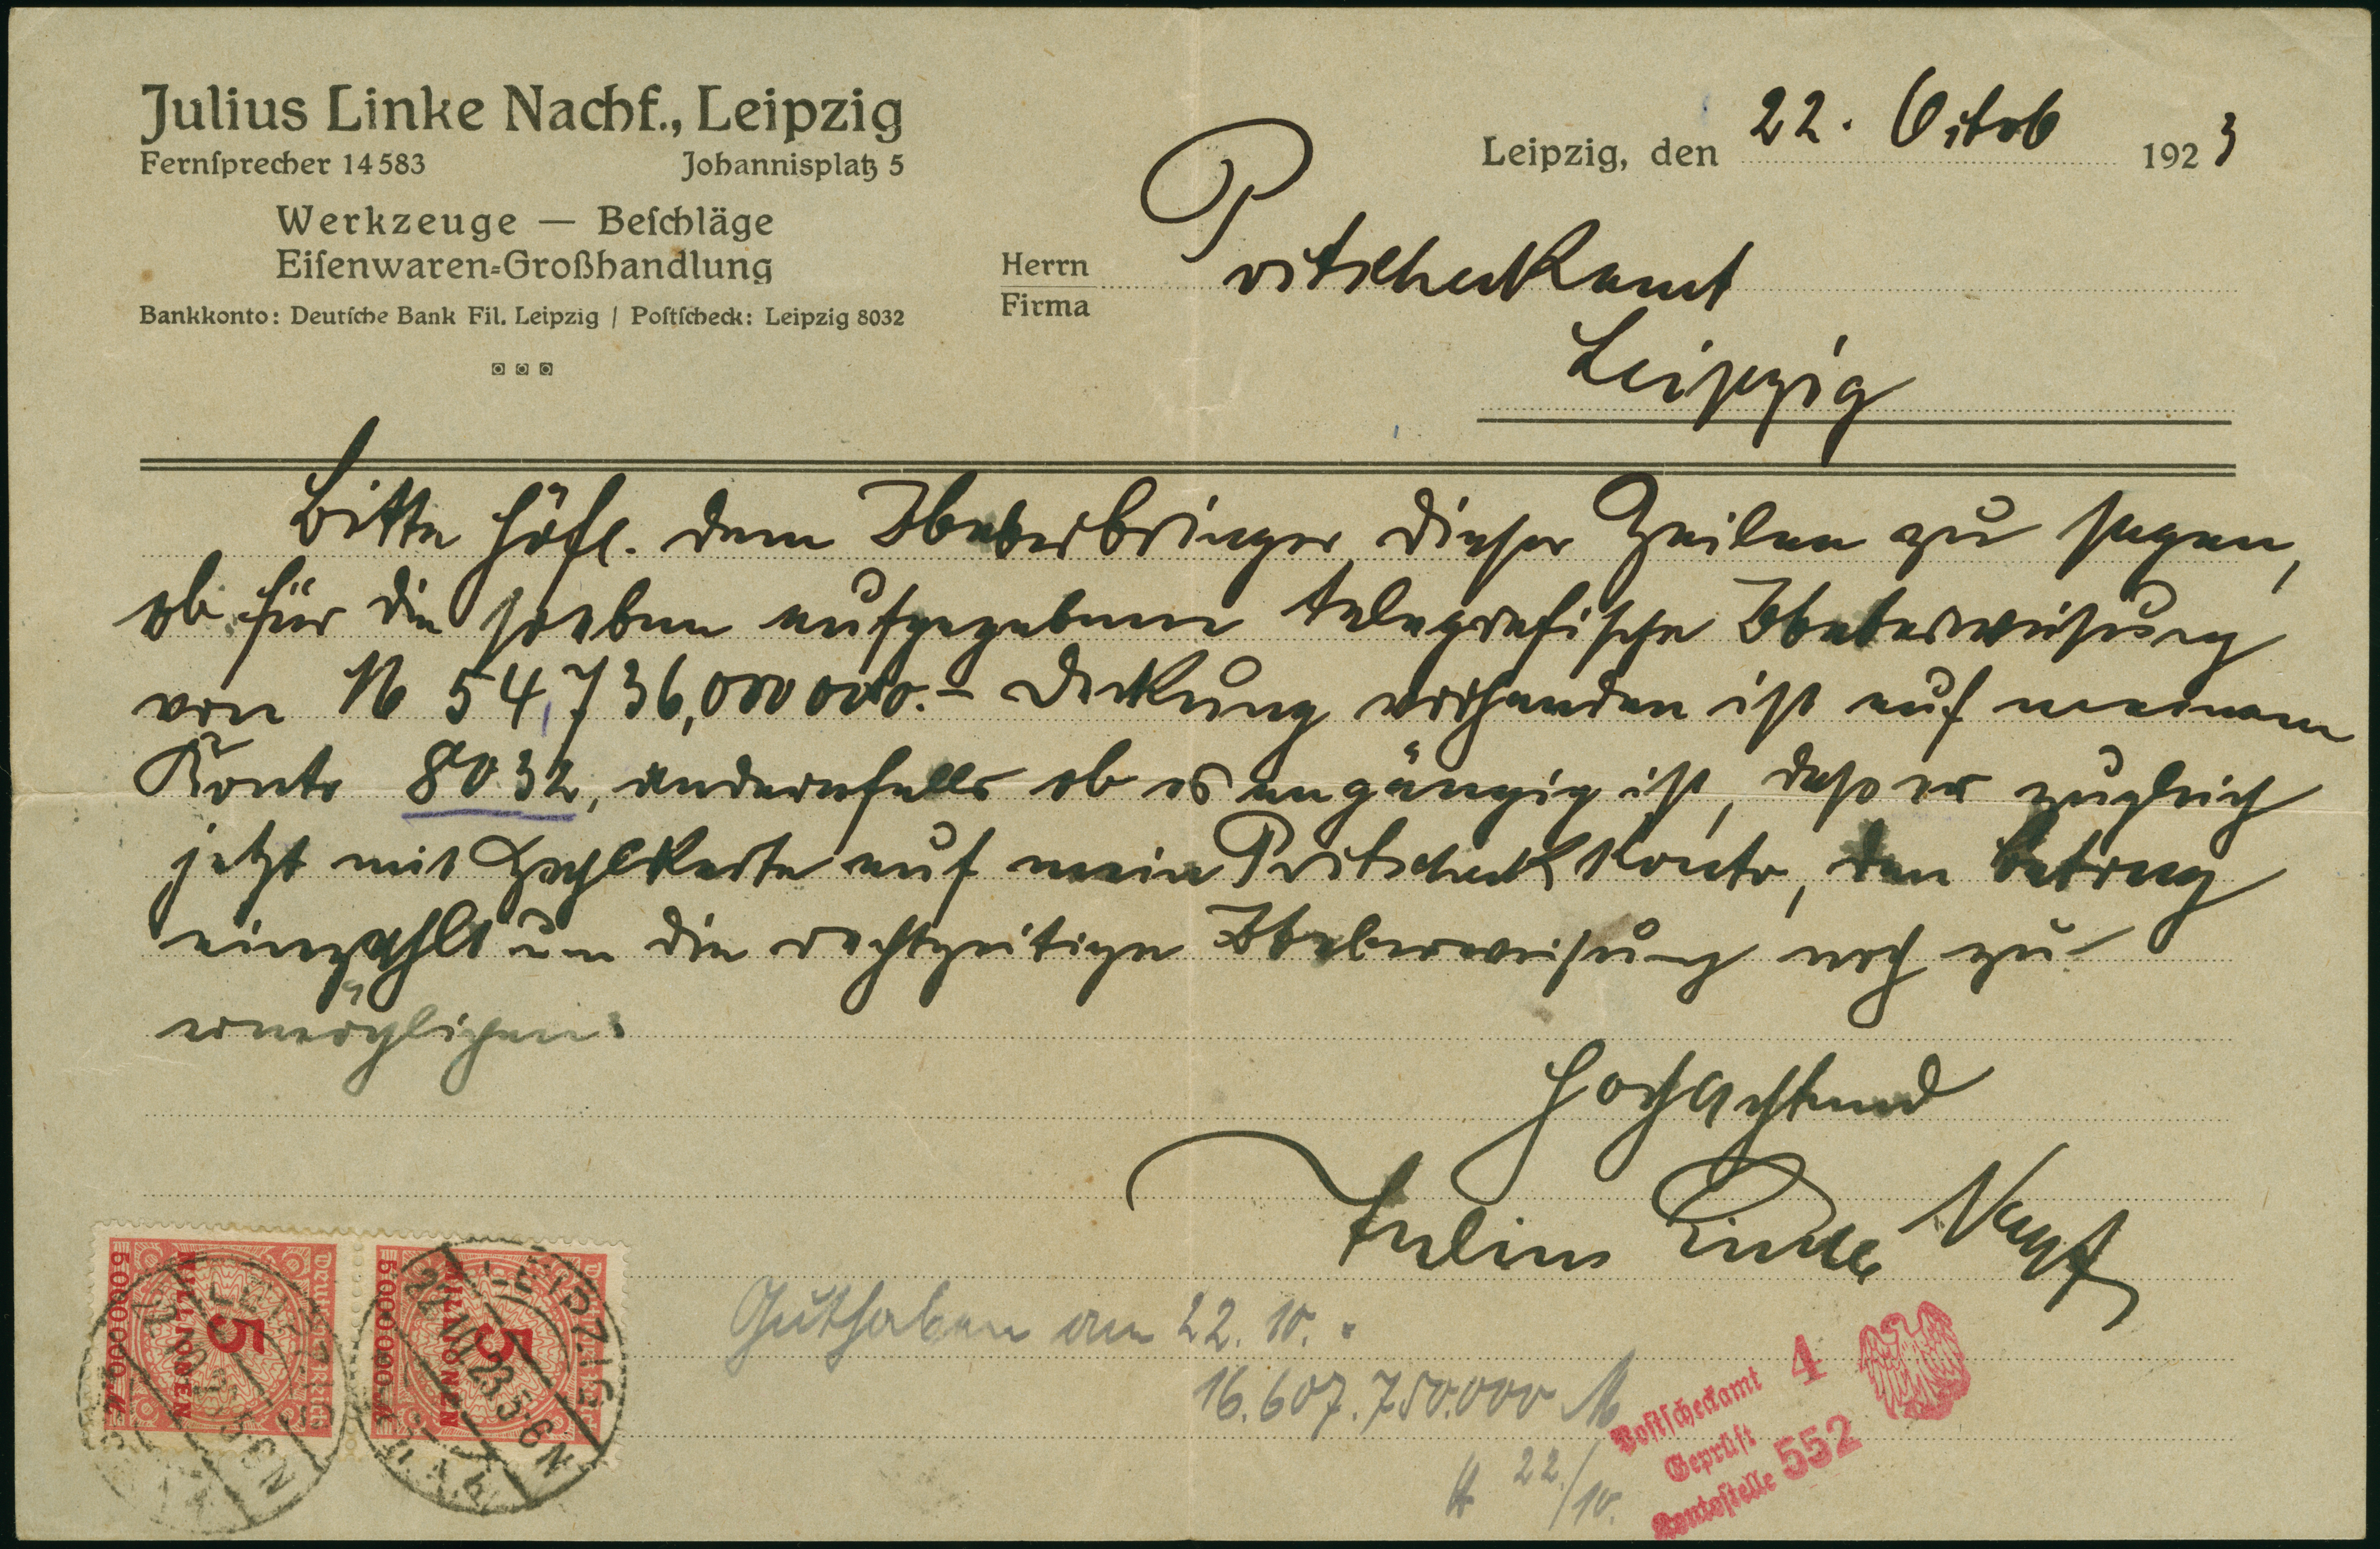 Julius Linke Nachf., Leipzig
Fernſprecher 14583 Johannisplatz 5
Werkzeuge — Beſchläge
Eiſenwaren-Großhandlung
Bankkonto: Deutſche Bank Fil. Leipzig / Poſtſcheck: Leipzig 8032
Leipzig, den 22. Octob 1923
Herrn
Firma
Postscheckamt
Leipzig
Bitte höfl. dem Ueberbringer dieser Zeilen zu sagen,
ob für die soeben aufgegebene telegrafische Ueberweisung
von M 54,736,000000.- Deckung vorhanden ist auf meinem
Konto 8032, andernfalls ob es angängig ist, dass er zugleich
jetzt mit Zahlkarte auf mein Postscheckkonto, den Betrag
einzahlt um die rechtzeitige Ueberweisung noch zu
ermöglichen.
Hochachtend
Julius Linke Nachf
Guthaben am 22. 10.
16.607.750.000 M
22./10.
Poſtſcheckamt 4
Geprüft
Kontoſtelle 552
5
MILLIONEN
5000000 M
LEIPZIG
5-6N
5
MILLIONEN
5000000 M
LEIPZIG
22.10.23.5-6N